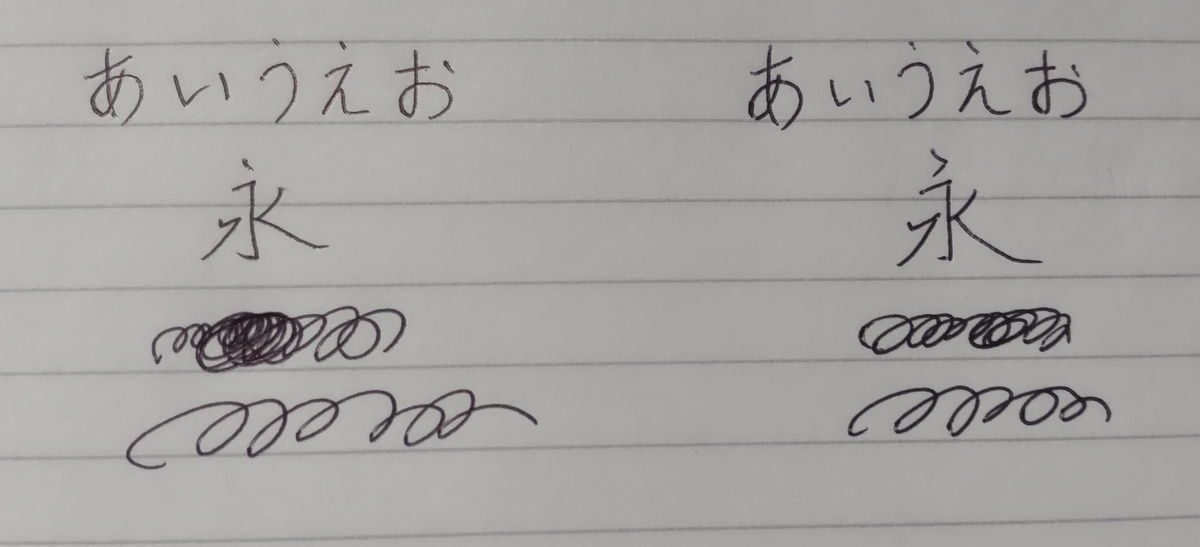 あいうえお あいうえお
永 永